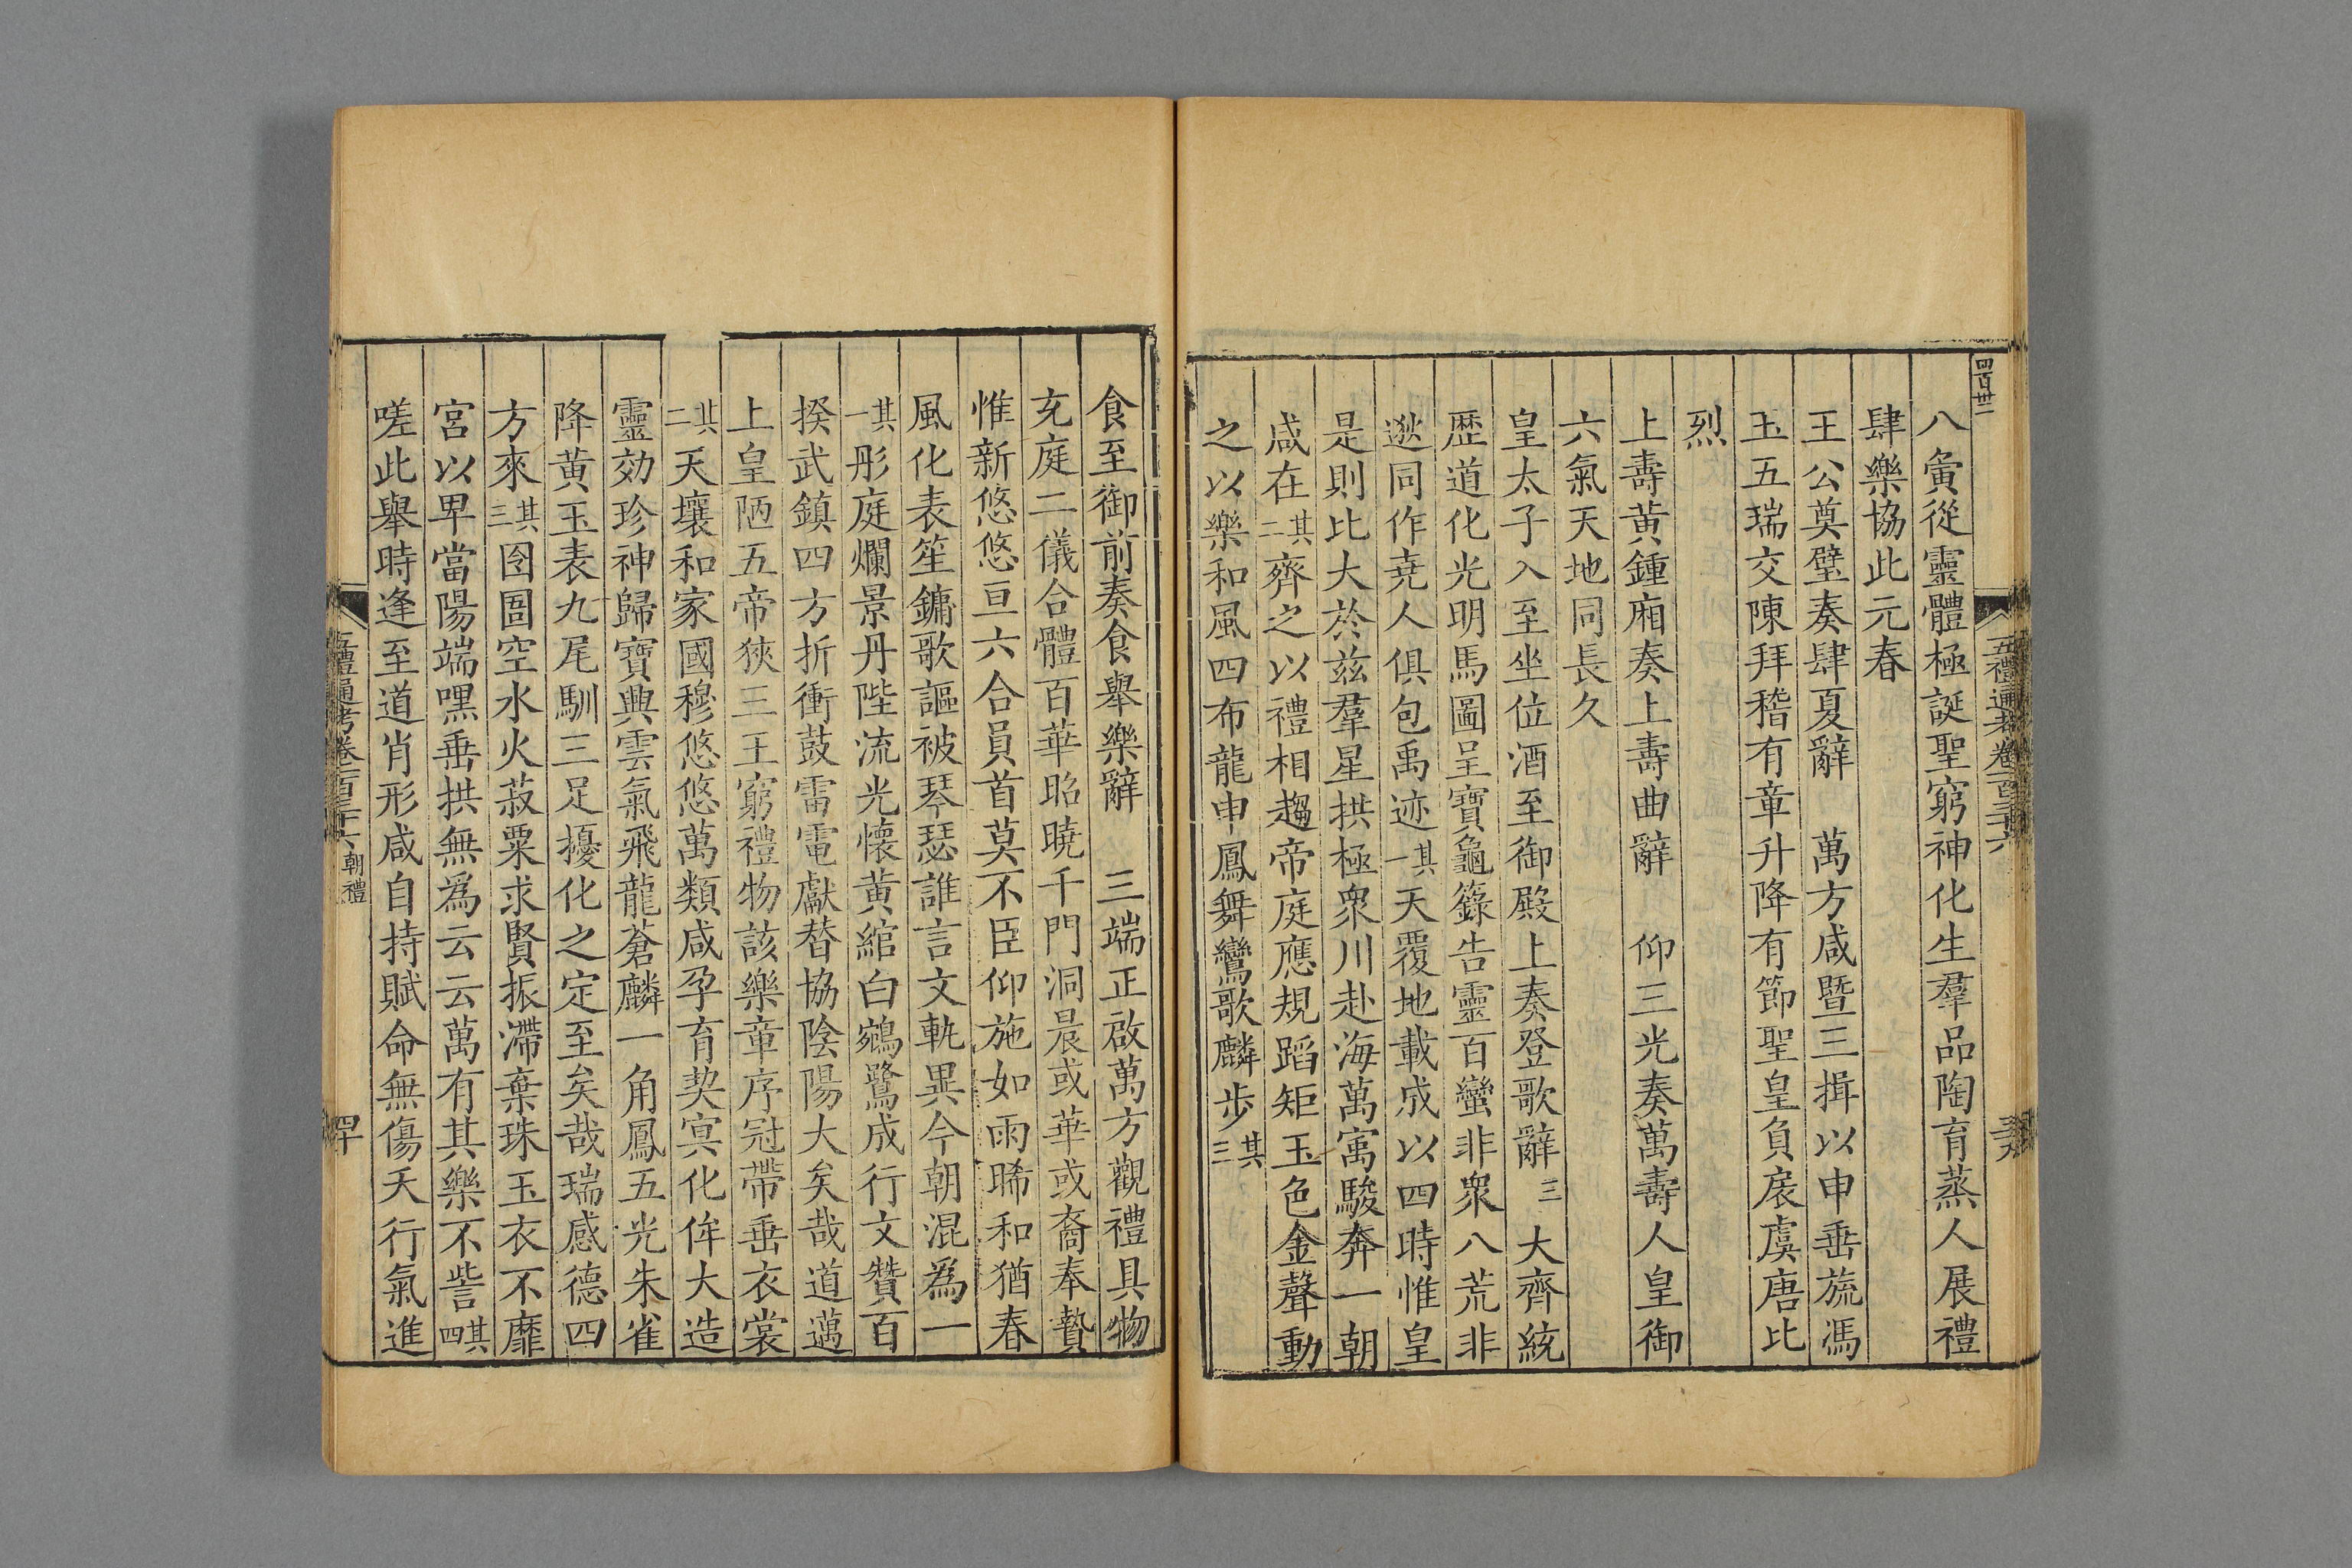 四百卅二
八夤從靈體極誕聖窮神化生羣品陶育蒸人展禮
肆樂協此元春
王公奠璧奏肆夏辭　萬方咸暨三揖以申垂旒馮
玉五瑞交陳拜稽有章升降有節聖皇負扆虞唐比
烈
上壽黃鍾廂奏上壽曲辭　仰三光奏萬壽人皇御
六氣天地同長久
皇太子入至坐位酒至御殿上奏登歌辭三　大齊統
歷道化光明馬圖呈寶龜籙告靈百蠻非衆八荒非
逖同作堯人俱包禹迹其一天覆地載成以四時惟皇
是則比大於兹羣星拱極衆川赴海萬㝢駿奔一朝
咸在其二齊之以禮相趨帝庭應規蹈矩玉色金聲動
之以樂和風四布龍申鳳舞鸞歌麟步其三
食至御前奏食舉樂辭　三端正啟萬方觀禮具物
充庭二儀合體百華昭曉千門洞晨或華或裔奉贄
惟新悠悠亘六合員首莫不臣仰施如雨晞和猶春
風化表笙鏞歌謳被琴瑟誰言文軌異今朝混爲一
其一彤庭爛景丹陛流光懷黃綰白鵷鷺成行文贊百
揆武鎮四方折衝鼓雷電獻替協陰陽大矣哉道邁
上皇陋五帝狹三王窮禮物該樂章序冠帶垂衣裳
其二天壤和家國穆悠悠萬類咸孕育契冥化侔大造
靈効珍神歸寶興雲氣飛龍蒼麟一角鳳五光朱雀
降黃玉表九尾馴三足擾化之定至矣哉瑞感德四
方來其三囹圄空水火菽粟求賢振滯棄珠玉衣不靡
宮以卑當陽端嘿垂拱無爲云云萬有其樂不訾其四
嗟此舉時逢至道肖形咸自持賦命無傷夭行氣進
五禮通考卷一百三十六 朝禮
四十